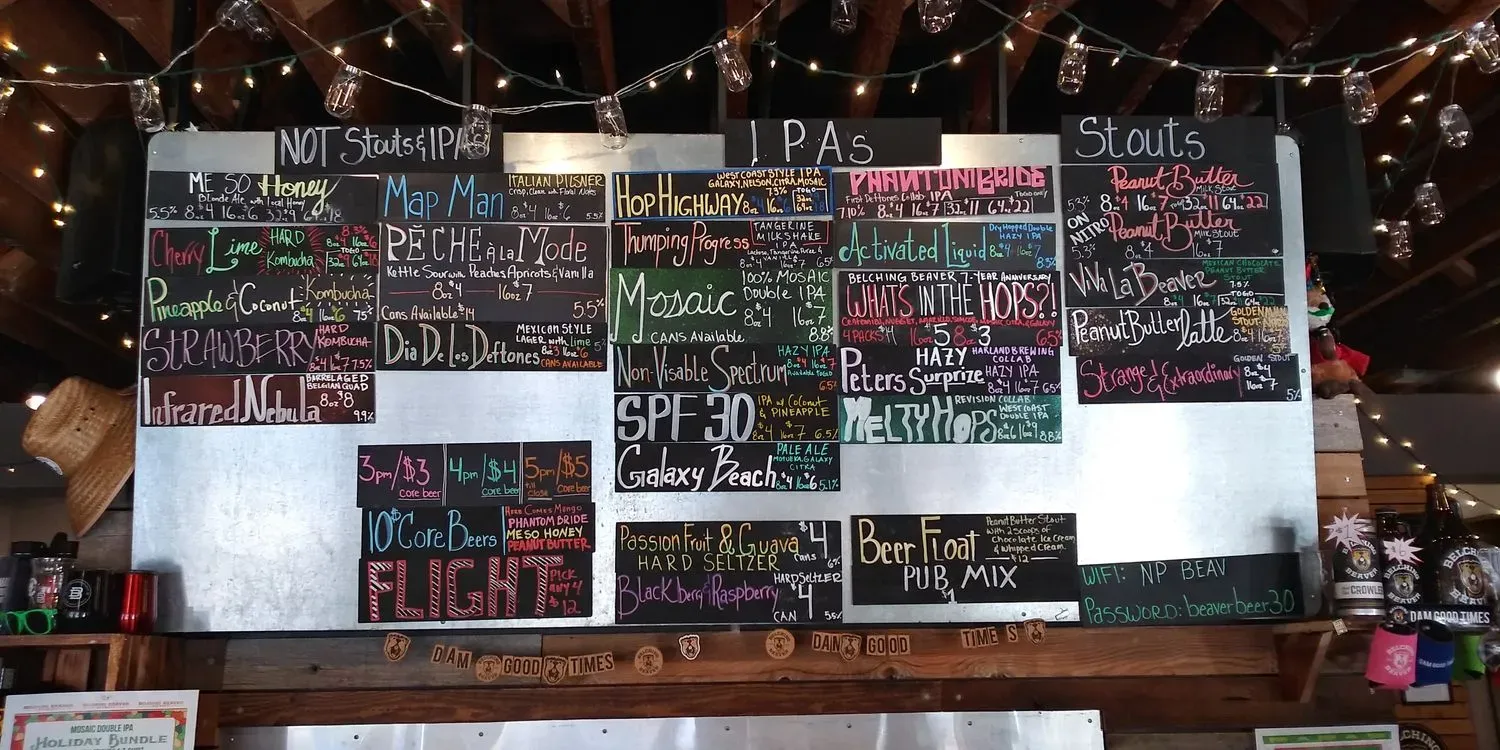 NOT Stouts & IPAs
ME SO Honey
Blonde Ale with local Honey
5.5% 8oz $4 16oz $6
Cherry Lime HARD Kombucha
8.3%
Pineapple & Coconut Kombucha
STRAWBERRY HARD KOMBUCHA
8oz $4 16oz $7 7.5%
Infrared Nebula BARREL AGED BELGIAN QUAD
8oz $8
9.9%
Map Man ITALIAN PILSNER
Crisp, Clean with Floral Notes
8oz $4 16oz $6 5.5%
PĒCHE à la MODE
Kettle Sour with Peaches Apricots & Vanilla
8oz $4 16oz $7
Cans Available $14 5.5%
Dia De Los Deftones MEXICAN STYLE LAGER with lime 5%
8oz $3 16oz $6
CANS AVAILABLE
3pm/$3 core beer
4pm/$4 core beer
5pm/$5 till Close core beer
$10 Core Beers
HERE COMES MANGO
PHANTOM BRIDE
ME SO HONEY
PEANUT BUTTER
FLIGHT PICK ANY 4 $12
IPAs
HOP HIGHWAY WEST COAST STYLE IPA
GALAXY, NELSON, CITRA, MOSAIC
7.3% TOGO
Thumping Progress TANGERINE MILKSHAKE IPA
MOSAIC 100% MOSAIC Double IPA
8oz $4 16oz $7
CANS Available 8.8%
Non-Visable Spectrum HAZY IPA
8oz $4 16oz $7
6.5%
SPF 30 IPA w/ COCONUT & PINEAPPLE
8oz $4 16oz $7 6.5%
Galaxy Beach PALE ALE
MOTUEKA, GALAXY CITRA
8oz $4 16oz $6 5.1%
PASSION FRUIT & GUAVA $4
HARD SELTZER cans 6%
Blackberry Raspberry HARD SELTZER $4
CAN 5%
PHANTOM BRIDE IPA
First Deftones Collab
TOGO ONLY
7.10% 8oz $4 16oz $7 32oz $11 64oz $22
Activated Liquid Dry Hopped Double HAZY IPA
8oz $4 16oz $7 8.5%
BELCHING BEAVER 7-YEAR ANNIVERSARY
WHATS IN THE HOPS?!
4 PACKS 16oz $5 8oz $3 6.5%
Peters HAZY Surprize HARLAND BREWING COLLAB
HAZY IPA
8oz $4 16oz $7 6.5%
MELTY HOPS REVISION COLLAB
WEST COAST DOUBLE IPA
8oz $6 16oz $9 8.8%
Beer Float Peanut Butter Stout
with 2 scoops of
Chocolate Ice Cream
& Whipped Cream.
$12
PUB MIX
$1
Stouts
Peanut Butter
Milk Stout
5.3% 8oz $4 16oz $7 32oz $11 64oz $22
ON NITRO Peanut Butter
MILK STOUT
5.3% 8oz $4 16oz $7
VIVA LA Beaver MEXICAN CHOCOLATE PEANUT BUTTER STOUT
7.5%
TOGO
Peanut Butter latte GOLDEN MILK STOUT
Strange & Extraordinary GOLDEN STOUT
8oz $4
16oz $7 5%
WIFI: NP BEAV
PASSWORD: beaverbeer30
DAM GOOD TIMES
DAM GOOD TIMES
MOSAIC DOUBLE IPA
HOLIDAY BUNDLE
BELCHING BEAVER
CROWLER
DAM GOOD TIMES